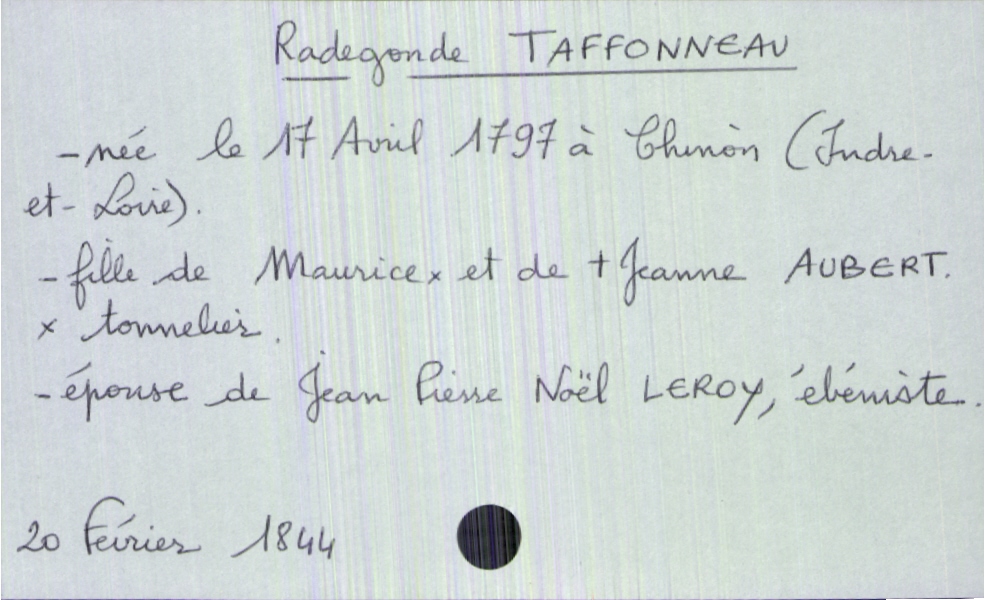 Radegonde TAFFONNEAU
- née le 17 Avril 1797 à Chinon (Indre-
et-Loire).
- fille de Maurice x et de + Jeanne AUBERT.
x tonnelier.
- épouse de Jean Pierre Noël LEROY, ébéniste.
20 Février 1844